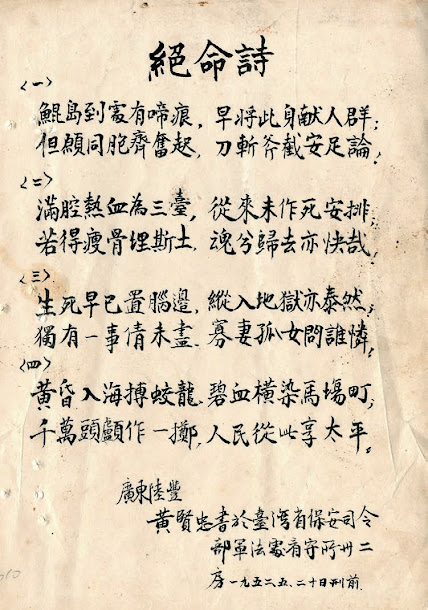 絕命詩
<一>
鯤島到處有啼痕，早將此身献人群；
但願同胞齊奮起，刀斬斧截安足論！
<二>
滿腔熱血為三臺，從來未作死安排；
若得瘦骨埋斯土，魂兮歸去亦快哉！
<三>
生死早已置腦邊，縱入地獄亦泰然；
獨有一事情未盡，寡妻孤女問誰憐！
<四>
黃昏入海搏蛟龍，碧血橫染馬場町；
千萬頭顱作一擲，人民從此享太平！
廣東陸豐
黃賢忠書於臺灣省保安司令
部軍法處看守所卅二
房一九五二、五、二十日刑前